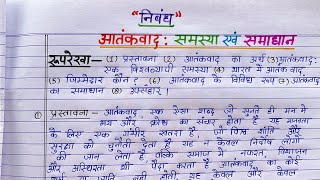 "निबंध"
आतंकवाद : समस्या एवं समाधान
रूपरेखा— (1) प्रस्तावना (2) आतंकवाद का अर्थ (3) आतंकवाद
एक विश्वव्यापी समस्या (4) भारत में आतंकवाद
(5) जिम्मेदार कौन ? (6) आतंकवाद के विविध रूप (7) आतंकवाद
का समाधान (8) उपसंहार।
① प्रस्तावना - आतंकवाद एक ऐसा शब्द जो सुनते ही मन में
भय और क्रोध का संचार होता है यह मानवता
के लिए एक गंभीर खतरा है, जो विश्व शांति और
सुरक्षा को चुनौती देता है यह न केवल निर्दोष लोगों
की जान लेता है, बल्कि समाज में नफरत, विभाजन
और अस्थिरता भी पैदा करता है आतंकवाद का कोई
धर्म या जाति नहीं होती यह केवल और केवल